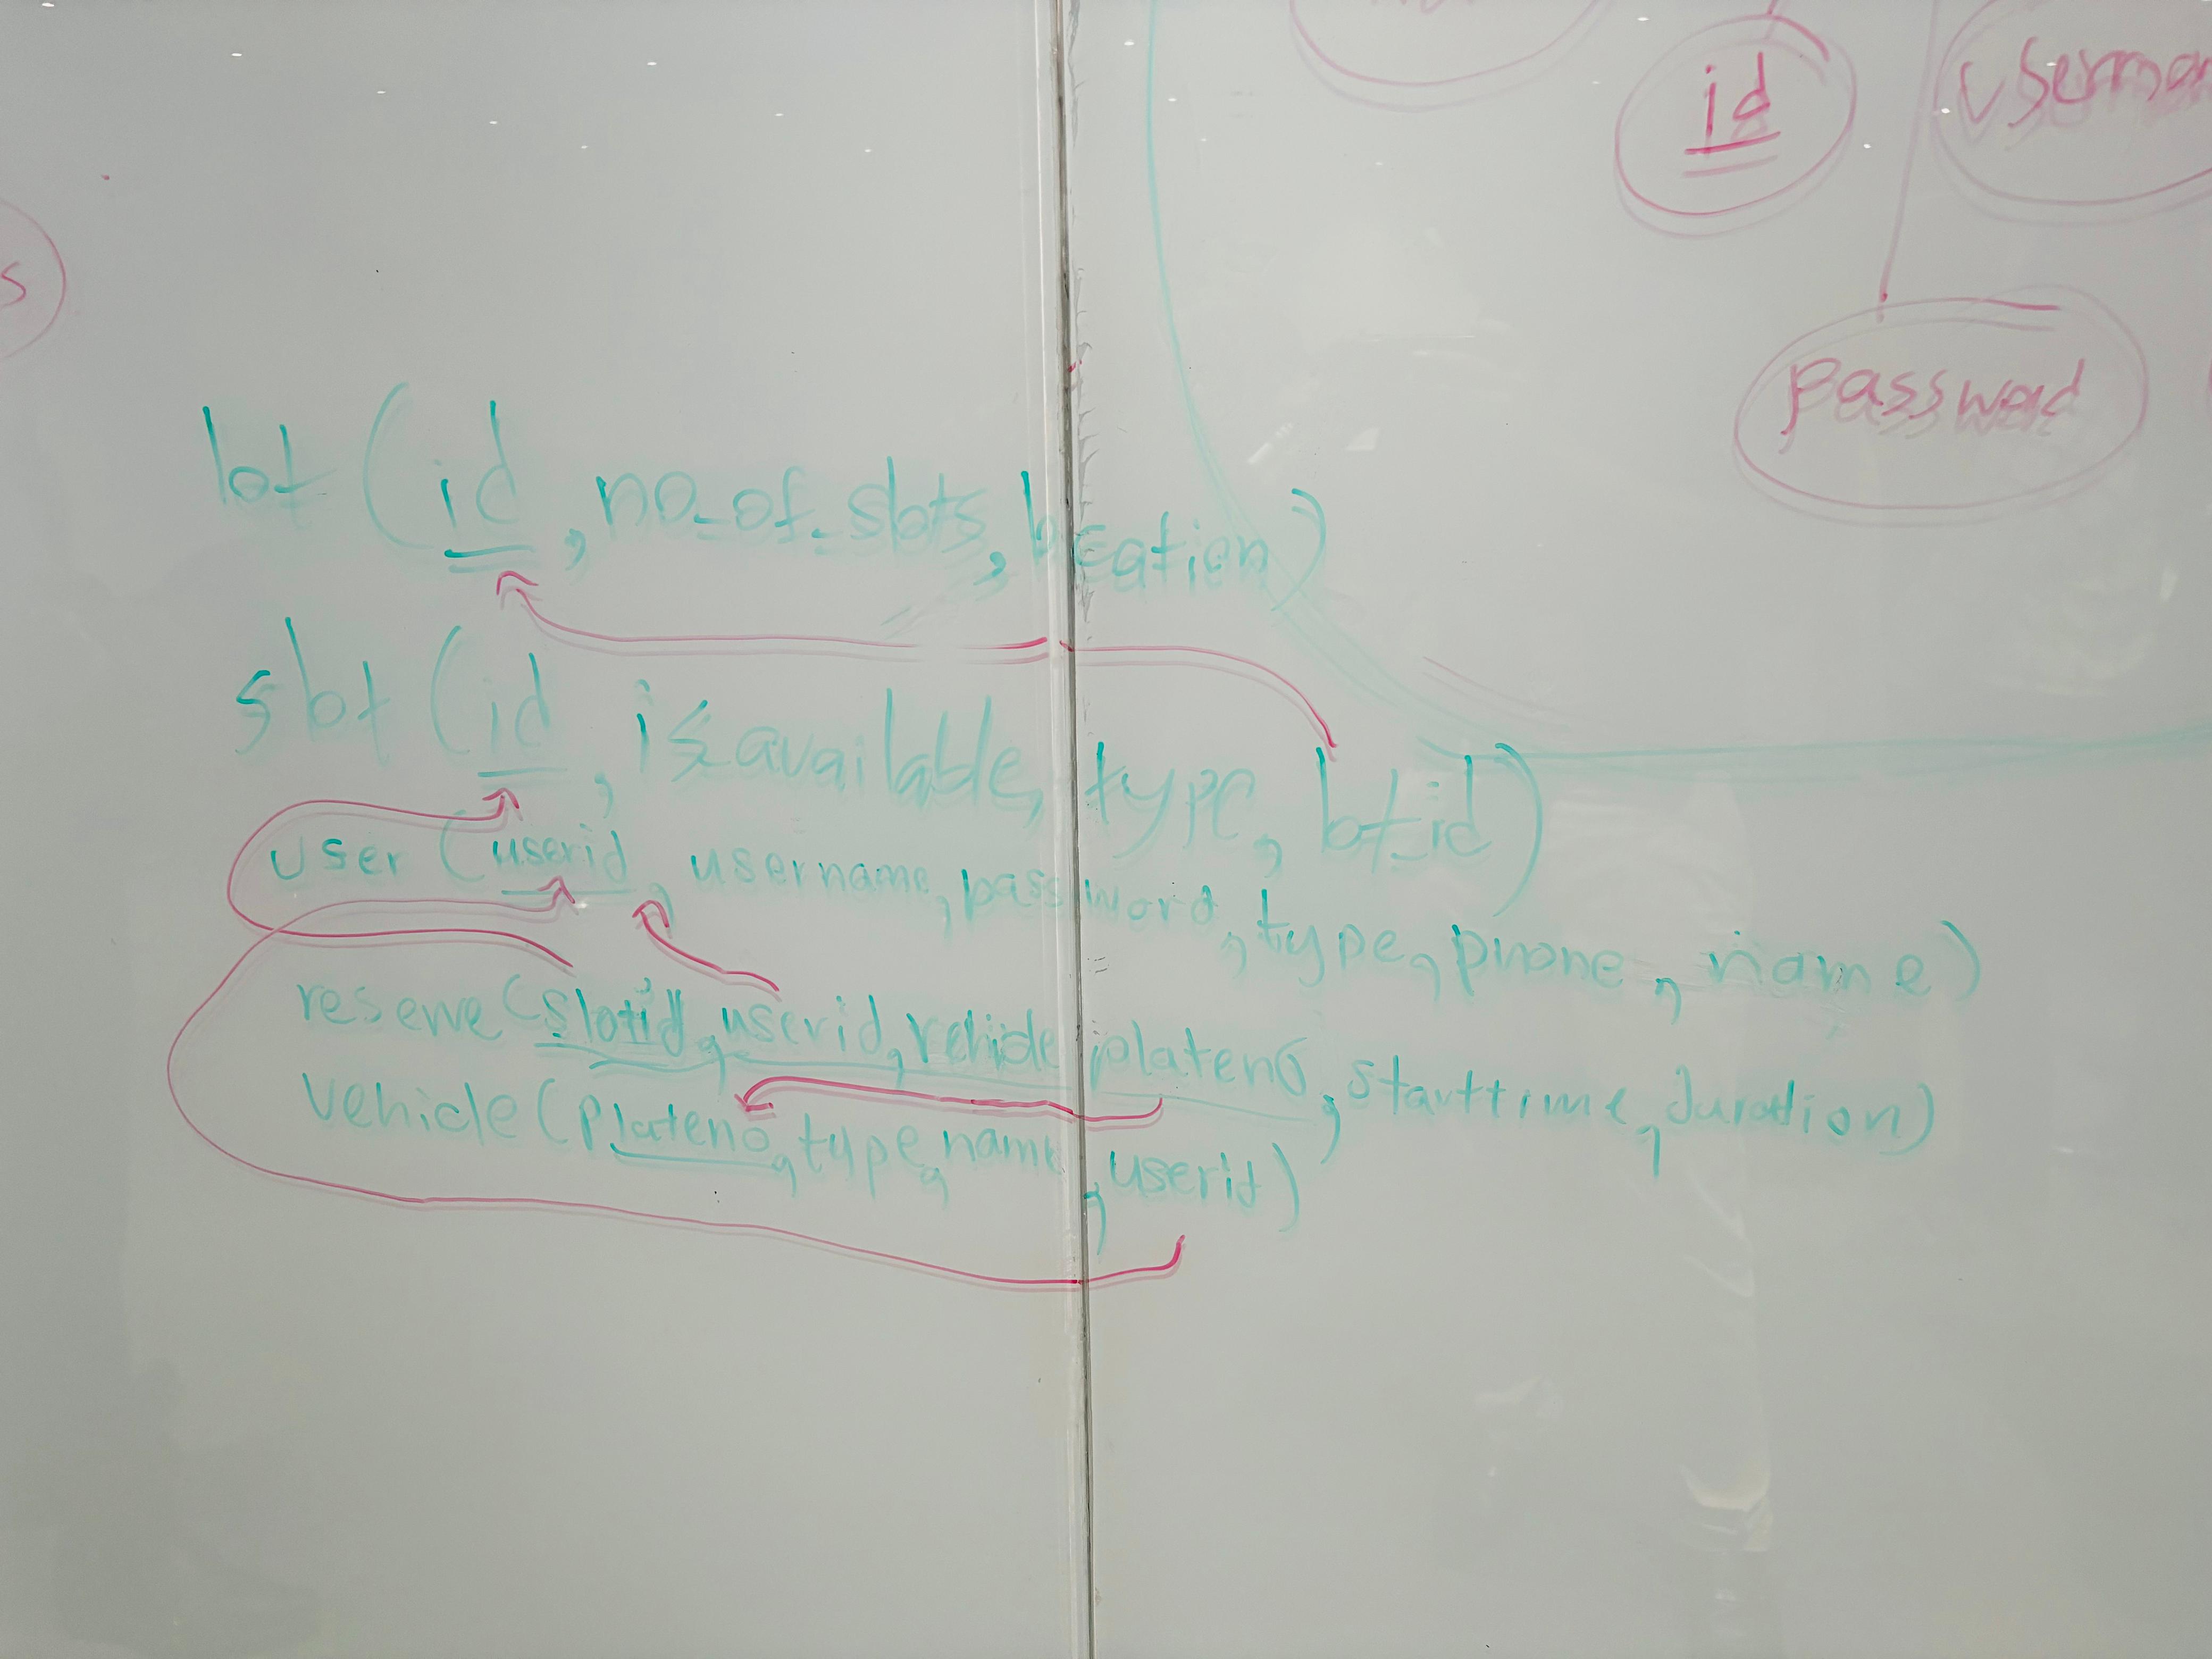 id
password
lot (id, no_of_slots, location)
slot (id, isavailable, type, lot_id)
user (userid, username, password, type, phone, name)
reserve (slotid, userid, vehicle plateno, starttime, duration)
Vehicle (plateno, type, name, userid)